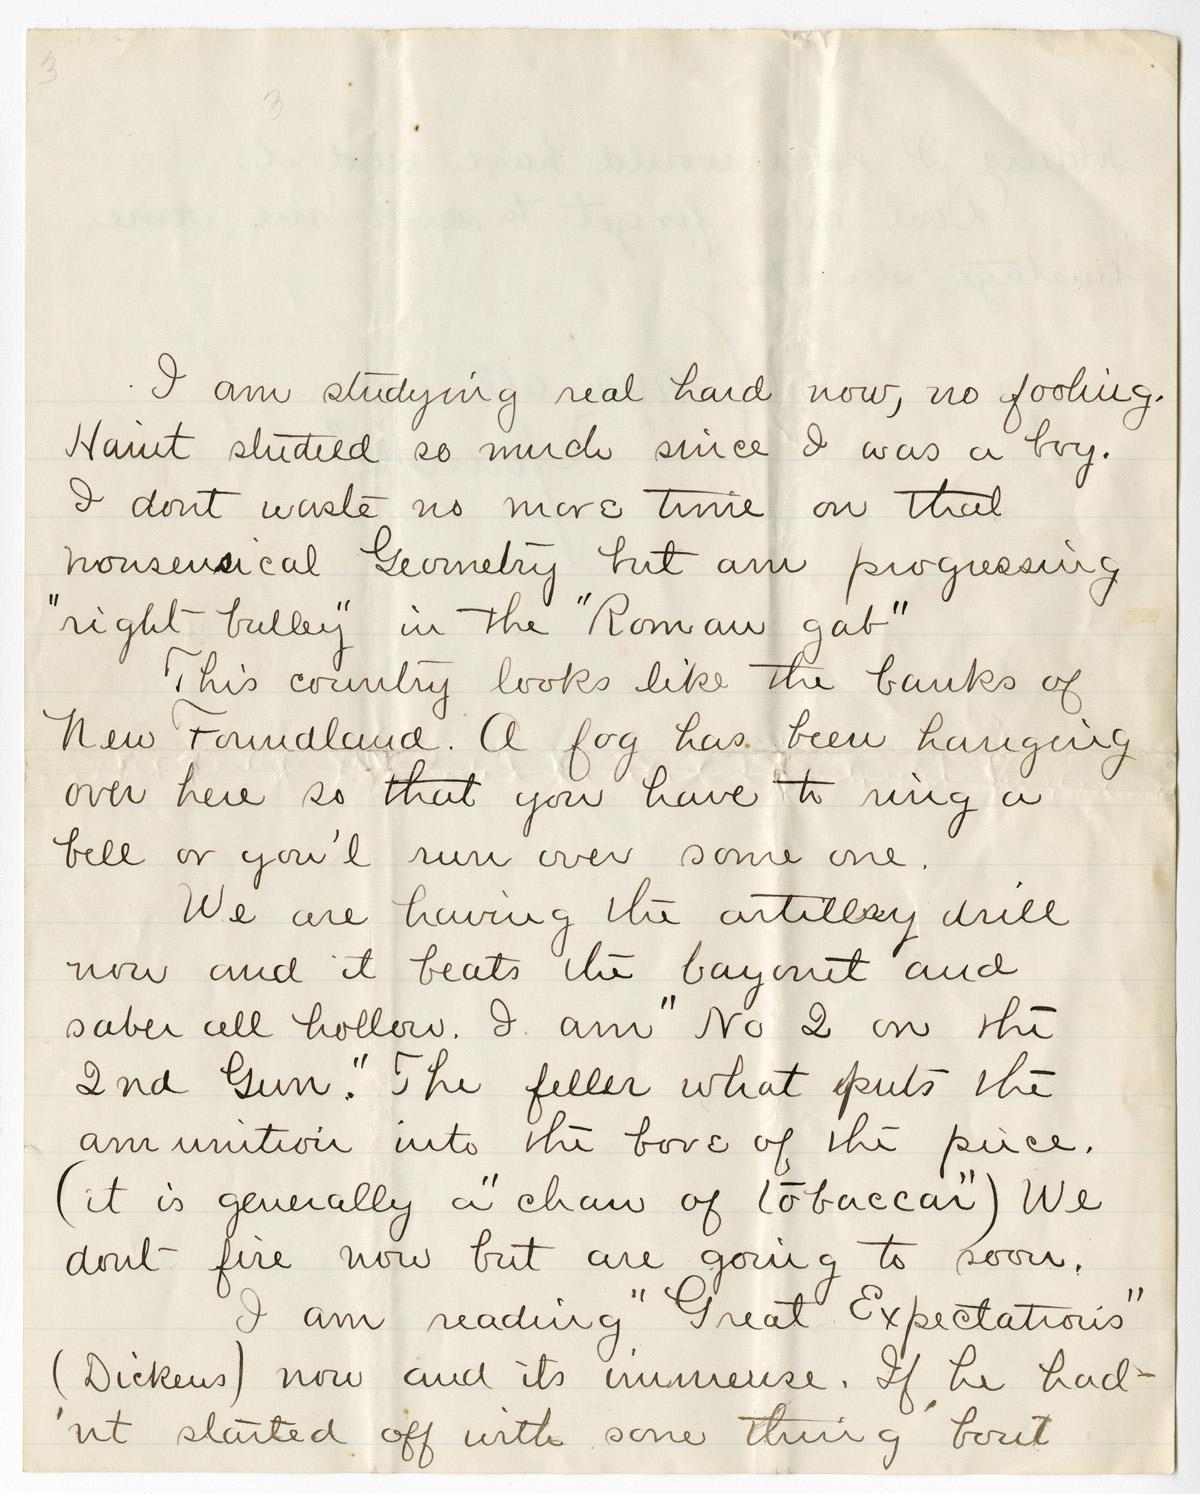 3
3
I am studying real hard now, no fooling.
Haint studied so much since I was a boy.
I dont waste no more time on that
nonsensical Geometry but am progressing
"right bulley" in the "Roman gab"
This country looks like the banks of
New Foundland. A fog has been hanging
over here so that you have to ring a
bell or you'l run over some one.
We are having the artillery drill
now and it beats the bayonet and
saber all hollow. I am "No 2 on the
2nd Gun". The feller what puts the
amunition into the bore of the piece.
(it is generally a "chaw of tobaccar") We
dont fire now but are going to soon.
I am reading "Great Expectations"
(Dickens) now and its immense. If he had-
'nt started off with some thing 'bout